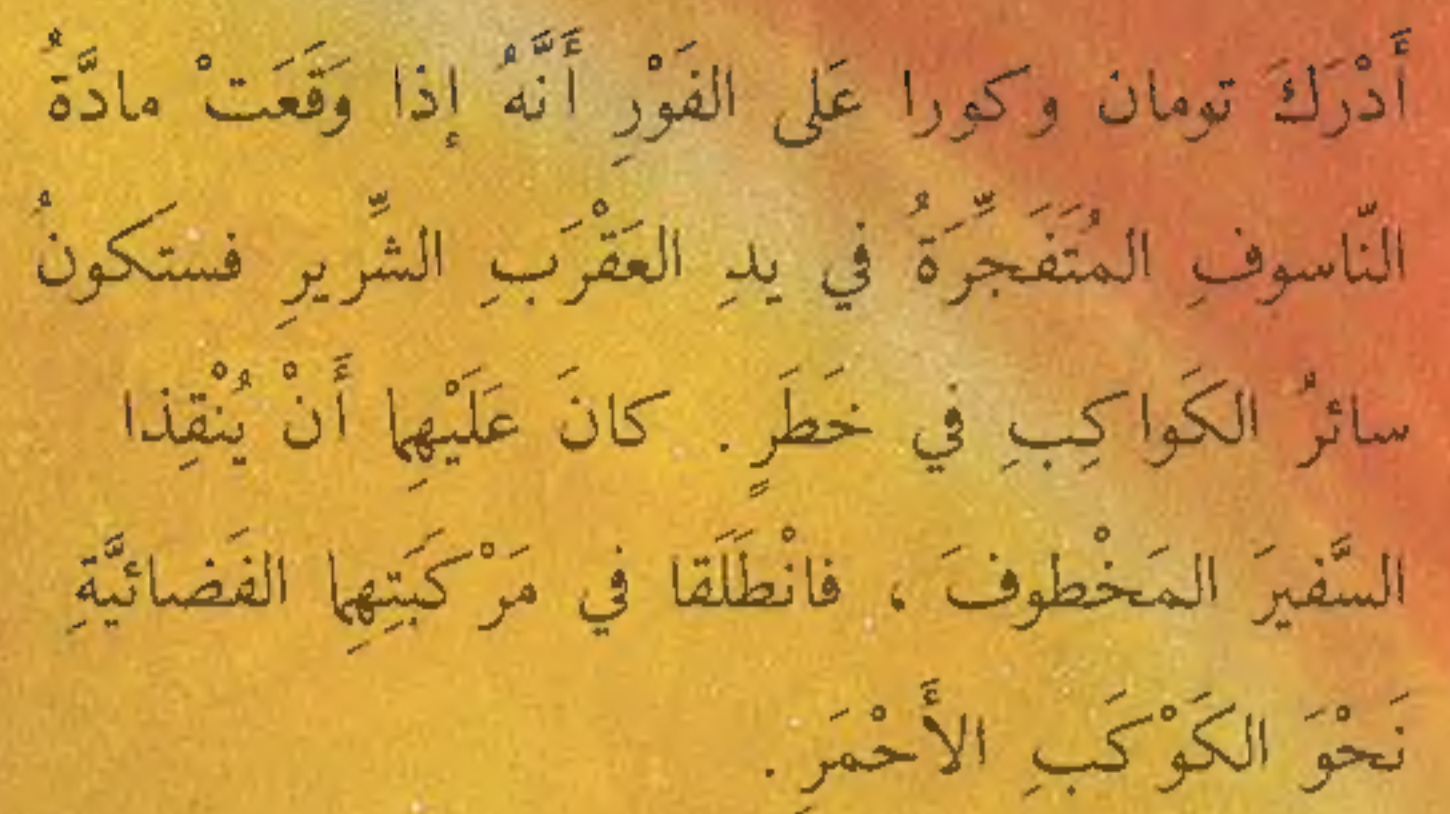 أَدْرَكَ تومان وكورا عَلى الفَوْرِ أَنَّهُ إذا وَقَعَتْ مادَّةُ
النّاسوفِ المُتَفَجِّرَةُ في يدِ العَقْرَبِ الشِّريرِ فستَكونُ
سائرُ الكَواكِبِ في خَطَرٍ. كانَ عَلَيْهِما أَنْ يُنْقِذا
السَّفيرَ المَخْطوفَ ، فانْطَلَقا في مَرْكَبَتِهِما الفَضائيَّةِ
نَحْوَ الكَوْكَبِ الأَحْمَرِ.